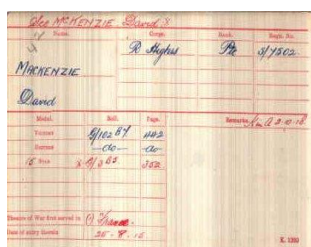 See McKENZIE David S
Name. Corps. Rank. Regtl. No.
R Highrs Pte S/7502
MACKENZIE
David
Medal. Roll. Page. Remarks.
Victory 442
British —do— do
15 Star 352
Theatre of War first served in (1) France
Date of entry therein 25-8-15
K. 1380